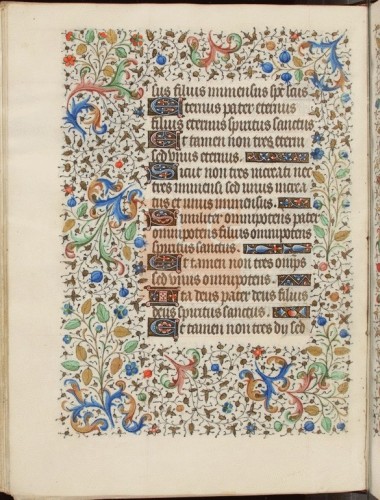 sus filius inmensus sps sanctus
Eternus pater eternus
filius eternus spiritus sanctus
Et tamen non tres eterni
sed unus eternus.
Sicut non tres increati nec
tres inmensi sed unus increa
tus et unus inmensus.
Similiter omnipotens pater
omnipotens filius omnipotens
spiritus sanctus.
Et tamen non tres omnipo
sed unus omnipotens.
Ita deus pater deus filius
deus spiritus sanctus.
Et tamen non tres dii sed